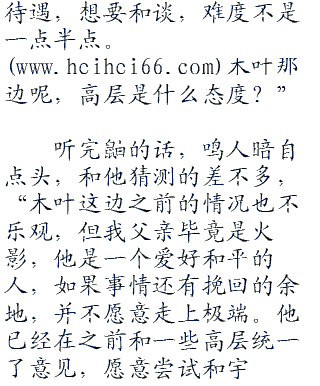 待遇，想要和谈，难度不是
一点半点。
(www.hcihci66.com)木叶那
边呢，高层是什么态度？”
听完鼬的话，鸣人暗自
点头，和他猜测的差不多，
“木叶这边之前的情况也不
乐观，但我父亲毕竟是火
影，他是一个爱好和平的
人，如果事情还有挽回的余
地，并不愿意走上极端。他
已经在之前和一些高层统一
了意见，愿意尝试和宇